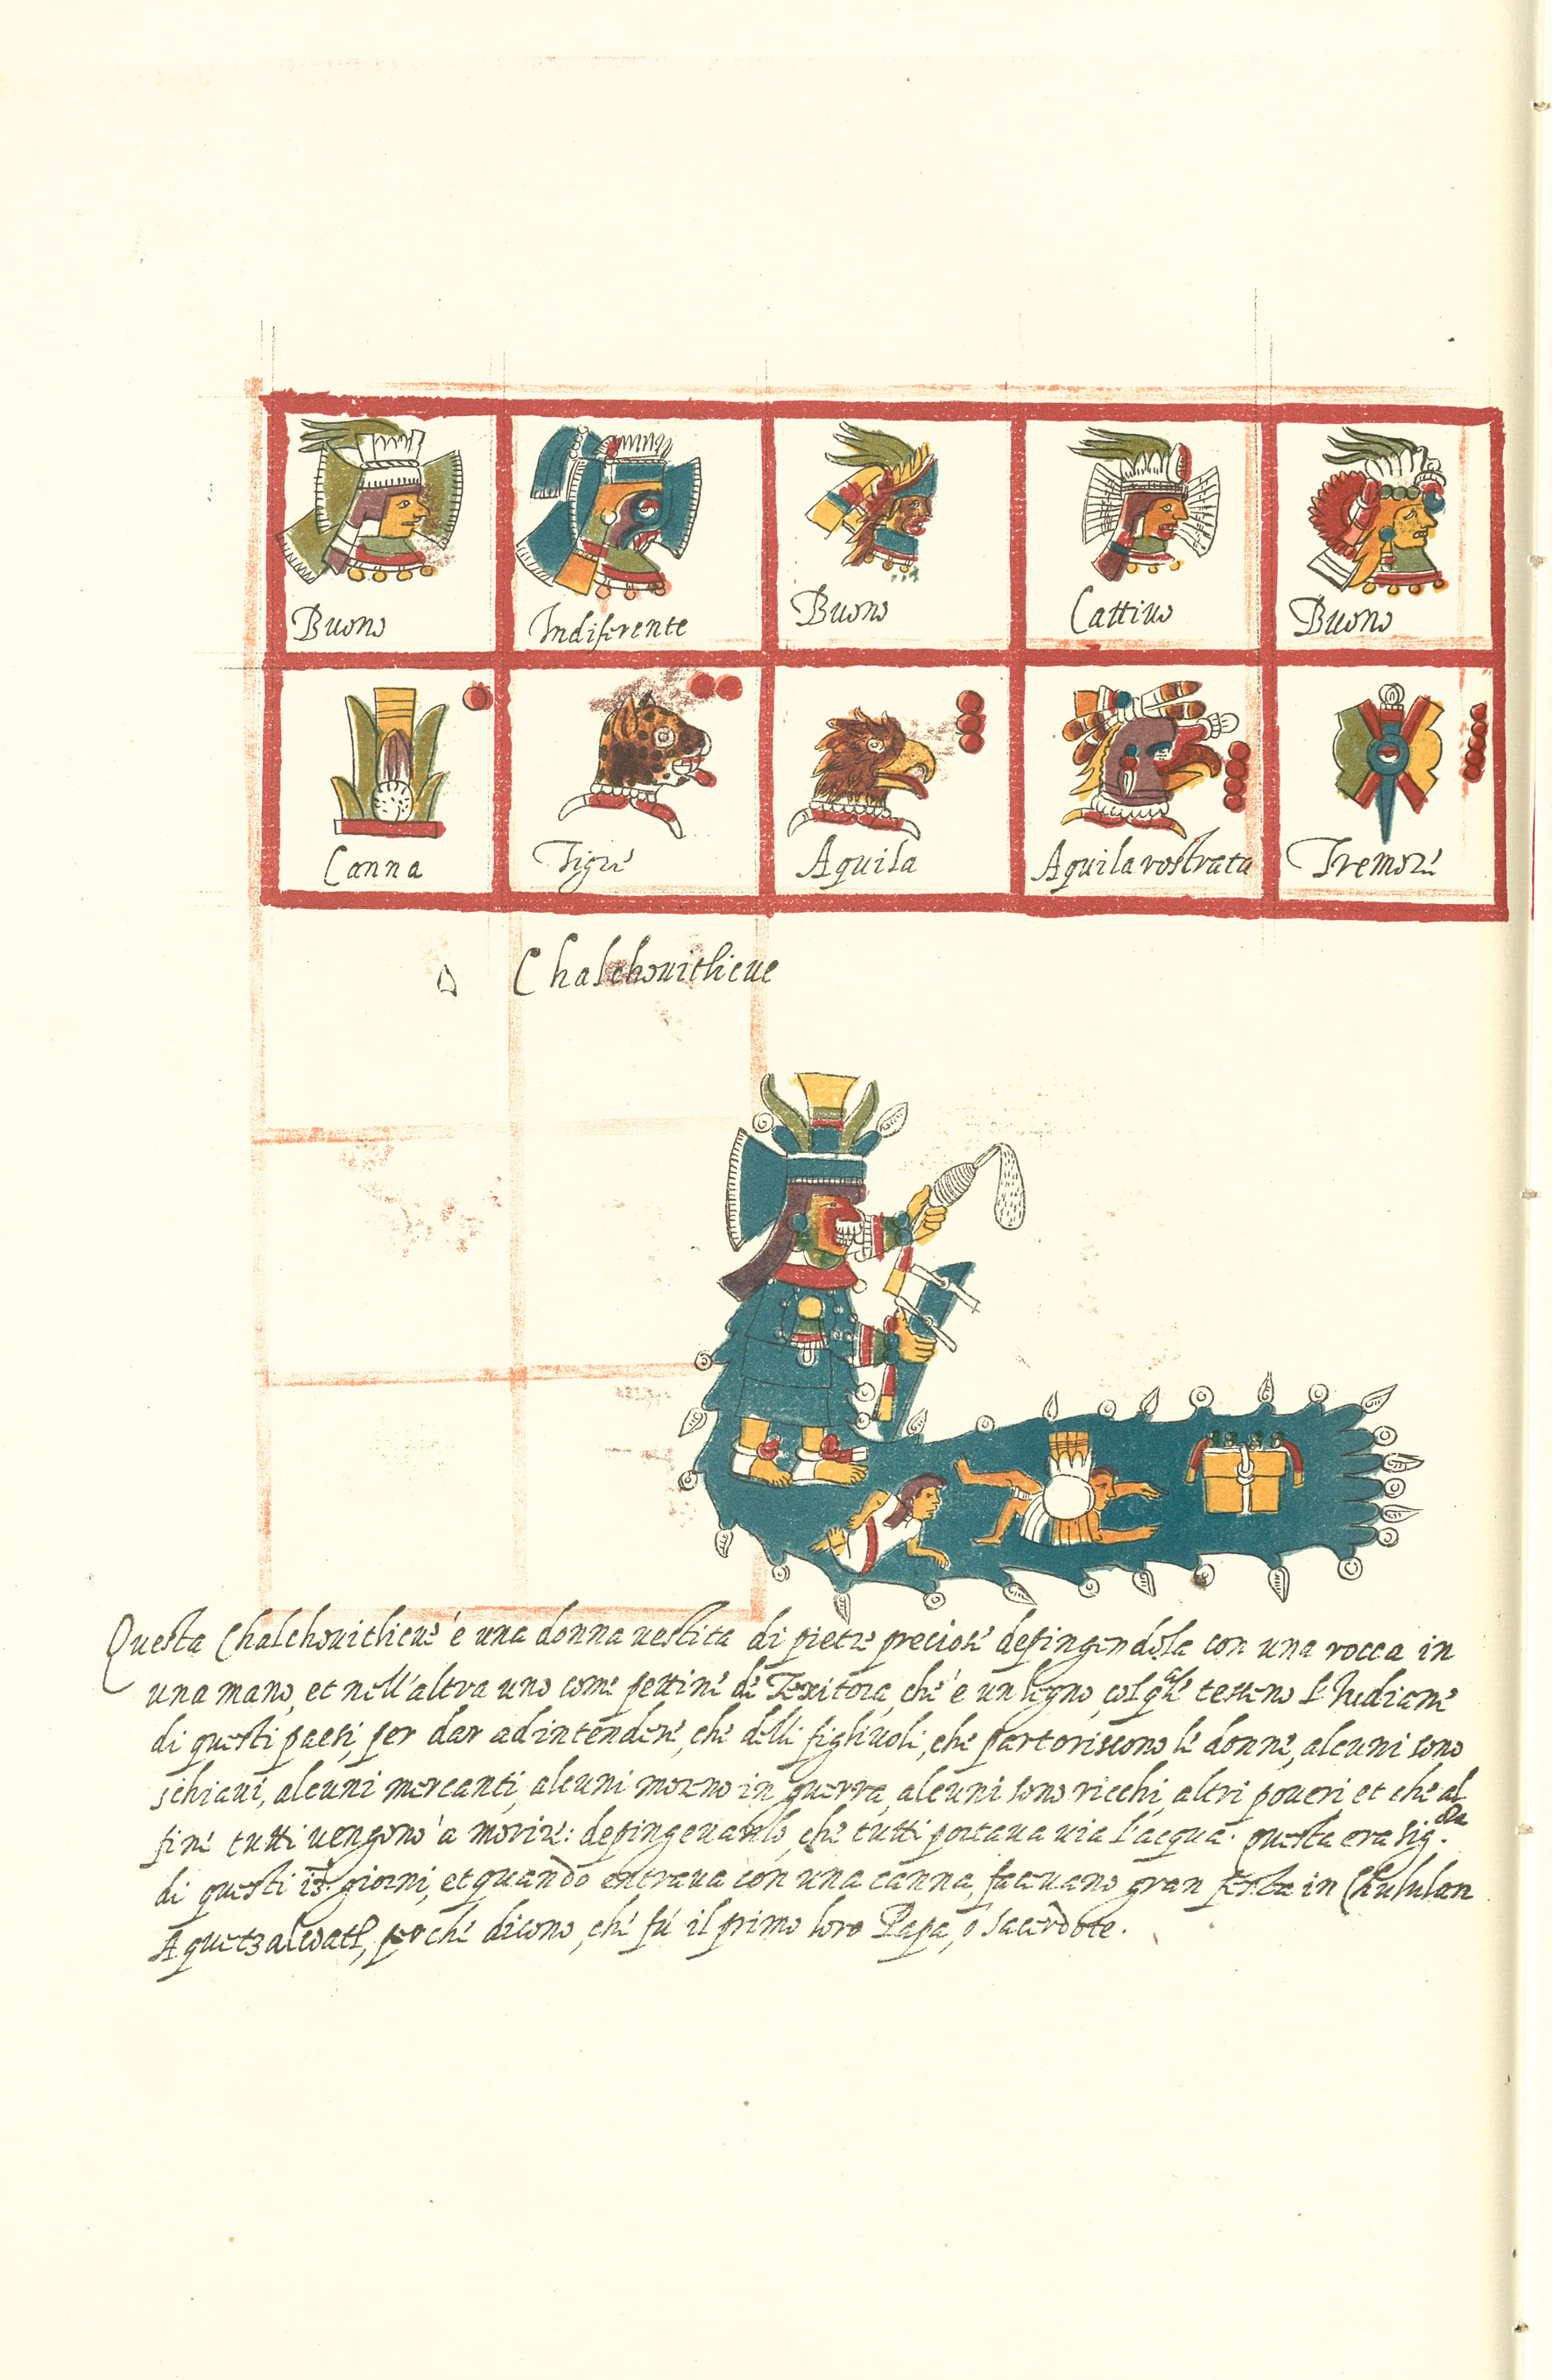 Buono
Indiferente
Buono
Cattiuo
Buono
Canna
Tigre
Aquila
Aquila rostrata
Tremore
Chalchouitlicue
Questa Chalchouitlicue è una donna uestita di pietre preciose depingendola con una rocca in
una mano, et nell'altra uno come pettine de Texitora, che è un legno, col q̃le tesseno l'Indiane
di questi paesi, per dar ad intendere, che delli figliuoli, che partoriscono le donne, alcuni sono
schiaui, alcuni mercanti, alcuni moreno in guerra, alcuni sono ricchi, altri poueri et che al
fine tutti uengono à morire: depingeuanlo, che tutti portaua uia l'acqua. questa era sig.ra
di questi 13. giorni, et quando entraua con una canna, faceuano gran festa in Chululan
A quetzalcoatl, perche dicono, che fù il primo loro Papa, o sacerdote.